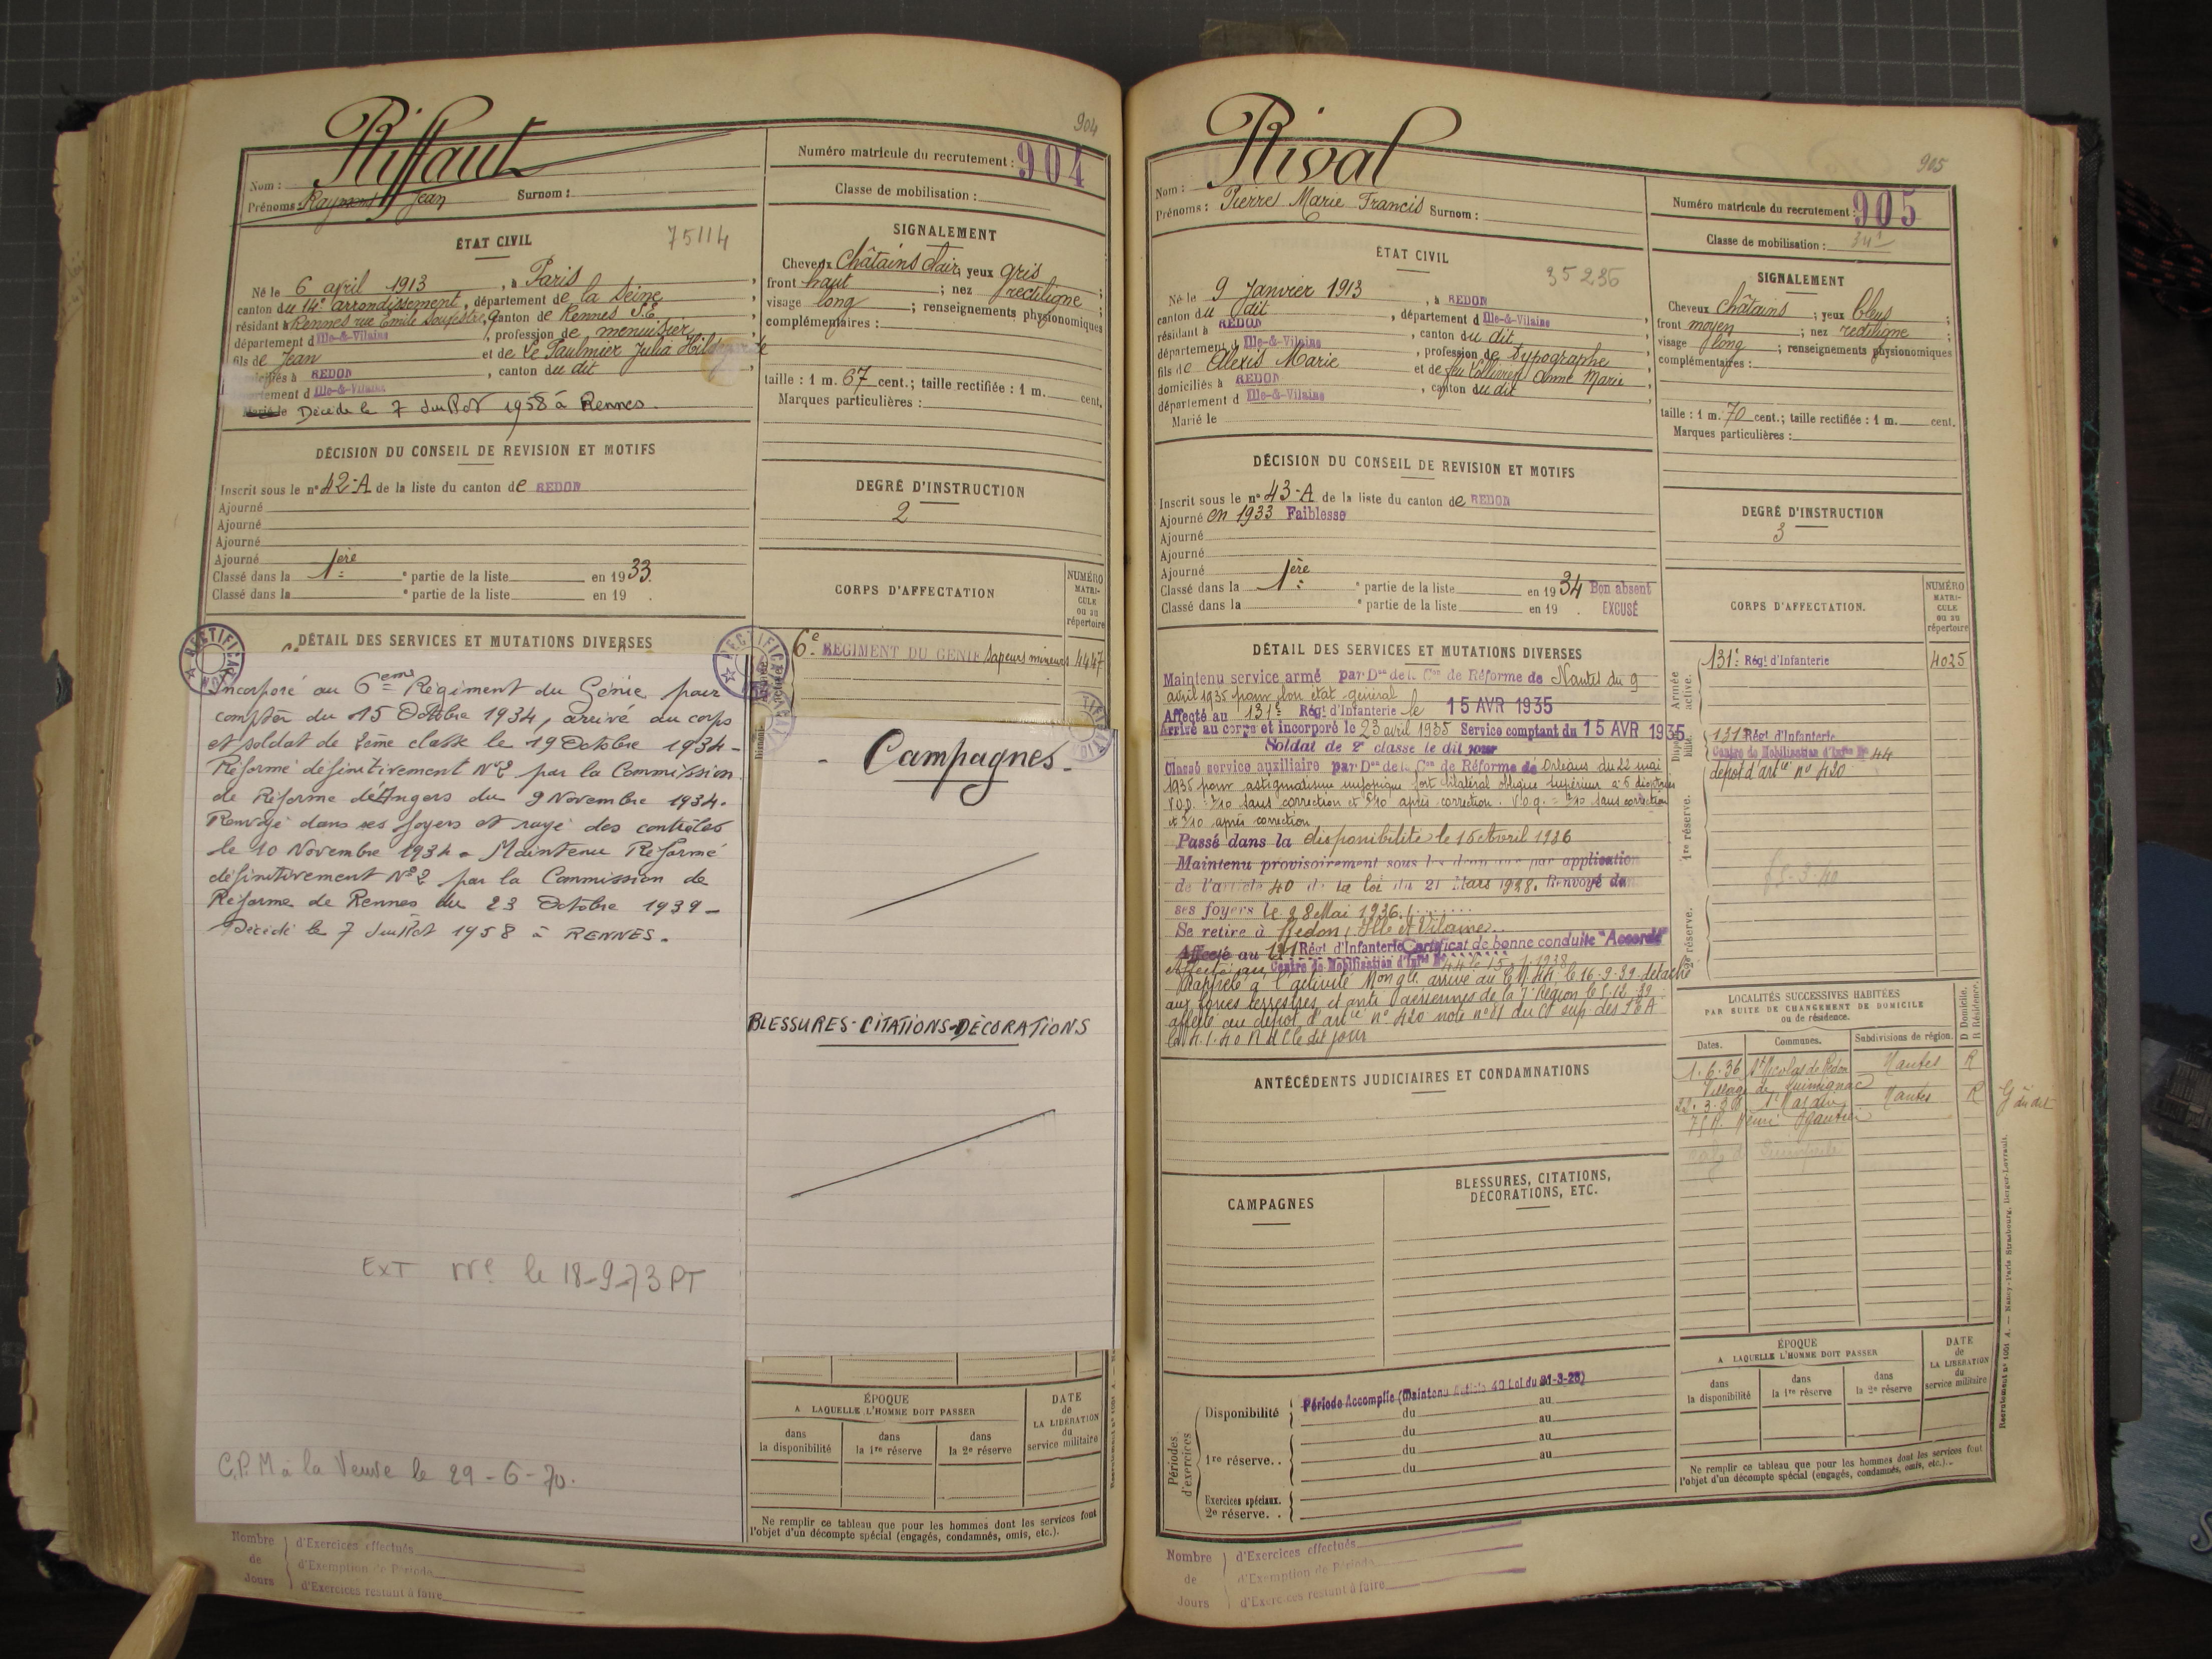 904
Riffaut
Nom :
Prénoms : Raymond Jean Surnom :
Numéro matricule du recrutement : 904
Classe de mobilisation :
ÉTAT CIVIL
75114
Né le 6 avril 1913, à Paris,
canton du 14e arrondissement, département de la Seine,
résidant à Rennes rue Emile Souvestre, 9 canton de Rennes S.E,
département d Ille-&-Vilaine, profession de menuisier
fils de Jean et de Le Paulmier Julia
domiciliés à REDON, canton du dit
département d Ille-&-Vilaine
Marié le Décédé le 7 Juillet 1958 à Rennes.
SIGNALEMENT
Cheveux châtains clair, yeux gris
front haut ; nez rectiligne ;
visage long ; renseignements physionomiques
complémentaires :
taille : 1 m. 67 cent.; taille rectifiée : 1 m. cent.
Marques particulières :
DÉCISION DU CONSEIL DE REVISION ET MOTIFS
Inscrit sous le n° 42-A de la liste du canton de REDON
Ajourné
Ajourné
Ajourné
Ajourné
Classé dans la 1ère partie de la liste en 1933.
Classé dans la e partie de la liste en 19 .
DEGRÉ D'INSTRUCTION
2
CORPS D'AFFECTATION
NUMÉRO MATRICULE ou au répertoire
6e RÉGIMENT DU GÉNIE Sapeurs mineurs 4447
DÉTAIL DES SERVICES ET MUTATIONS DIVERSES
RECTIFICATION
Incorporé au 6eme Régiment du Génie pour
compter du 15 Octobre 1934, arrivé au corps
et soldat de 2ème classe le 19 Octobre 1934 -
Réformé définitivement N°2 par la Commission
de Réforme d'Angers du 9 Novembre 1934.
Renvoyé dans ses foyers et rayé des contrôles
le 10 Novembre 1934 - Maintenu Réformé
définitivement N°2 par la Commission de
Réforme de Rennes du 23 Octobre 1939 -
Décédé le 7 Juillet 1958 à RENNES.
EXT le 18-9-73 PT
C.P.M à la Veuve le 29-6-70.
- Campagnes -
BLESSURES-CITATIONS-DÉCORATIONS
ÉPOQUE
A LAQUELLE L'HOMME DOIT PASSER
dans la disponibilité
dans la 1re réserve
dans la 2e réserve
DATE de LA LIBÉRATION du service militaire
Ne remplir ce tableau que pour les hommes dont les services font
l'objet d'un décompte spécial (engagés, condamnés, omis, etc.).
Nombre de Jours
d'Exercices effectués
d'Exemption de Période
d'Exercices restant à faire
905
Rival
Nom :
Prénoms : Pierre Marie Francis Surnom :
Numéro matricule du recrutement : 905
Classe de mobilisation :
ÉTAT CIVIL
35236
Né le 9 Janvier 1913, à REDON
canton du dit, département d Ille-&-Vilaine
résidant à REDON, canton du dit
département d Ille-&-Vilaine, profession de typographe
fils de Alexis Marie et de feu Anne Marie
domiciliés à REDON, canton du dit
département d Ille-&-Vilaine
Marié le
SIGNALEMENT
Cheveux châtains ; yeux bleus ;
front moyen ; nez rectiligne ;
visage long ; renseignements physionomiques
complémentaires :
taille : 1 m. 70 cent.; taille rectifiée : 1 m. cent.
Marques particulières :
DÉCISION DU CONSEIL DE REVISION ET MOTIFS
Inscrit sous le n° 43-A de la liste du canton de REDON
Ajourné en 1933 Faiblesse
Ajourné
Ajourné
Ajourné
Classé dans la 1ère partie de la liste en 1934 Bon absent
Classé dans la e partie de la liste en 19 . EXCUSÉ
DEGRÉ D'INSTRUCTION
3
CORPS D'AFFECTATION.
NUMÉRO MATRICULE ou au répertoire
Armée active.
131e Régt d'Infanterie 4025
Disponibilité.
131 Régt d'Infanterie
Centre de Mobilisation d'Infie N° 44
dépôt d'artie n° 420
1re réserve.
2e réserve.
DÉTAIL DES SERVICES ET MUTATIONS DIVERSES
Maintenu service armé par Don de la Con de Réforme de Nantes du 9
avril 1935 pour bon état général
Affecté au 131e Régt d'Infanterie le 15 AVR 1935
Arrivé au corps et incorporé le 23 avril 1935 Service comptant du 15 AVR 1935
Soldat de 2e classe le dit jour
Classé service auxiliaire par Don de la Con de Réforme de Orléans du 22 mai
1935 pour astigmatisme myopique fort bilatéral oblique supérieur à 5 dioptries
sans correction et après correction. sans correction
et après correction
Passé dans la disponibilité le 15 Avril 1936
Maintenu provisoirement sous les drapeaux par application
de l'article 40 de la loi du 21 Mars 1928. Renvoyé dans
ses foyers le 28 Mai 1936.
Se retire à Redon (Ille et Vilaine)
Affecté au 131 Régt d'Infanterie Certificat de bonne conduite "Accordé"
Affecté au Centre de Mobilisation d'Infie N° 44 le 15
Rappelé à l'activité Mon gle arrivé au C.M. 44 le 16-9-39 détaché
aux forces terrestres et anti aériennes de la Région le
affecté au dépôt d'artie n° 420 note n° 81 du
le dit jour
LOCALITÉS SUCCESSIVES HABITÉES
PAR SUITE DE CHANGEMENT DE DOMICILE
ou de résidence.
D Domicile. R Résidence.
Dates. Communes. Subdivisions de région.
1.6.36 St Nicolas de Redon Nantes R
Village de Quinsignac
St Nazaire Nantes R
Henri Gautier
ANTÉCÉDENTS JUDICIAIRES ET CONDAMNATIONS
CAMPAGNES
BLESSURES, CITATIONS,
DÉCORATIONS, ETC.
Périodes d'exercices
Disponibilité Période Accomplie (Maintenu Article 40 Loi du 31-3-28)
du au
du au
1re réserve. . du au
du au
Exercices spéciaux.
2e réserve. .
ÉPOQUE
A LAQUELLE L'HOMME DOIT PASSER
dans la disponibilité
dans la 1re réserve
dans la 2e réserve
DATE de LA LIBÉRATION du service militaire
Ne remplir ce tableau que pour les hommes dont les services font
l'objet d'un décompte spécial (engagés, condamnés, omis, etc.).
Recrutement n° 1051 A. — Nancy-Paris-Strasbourg, Berger-Levrault.
Nombre de Jours
d'Exercices effectués
d'Exemption de Période
d'Exercices restant à faire